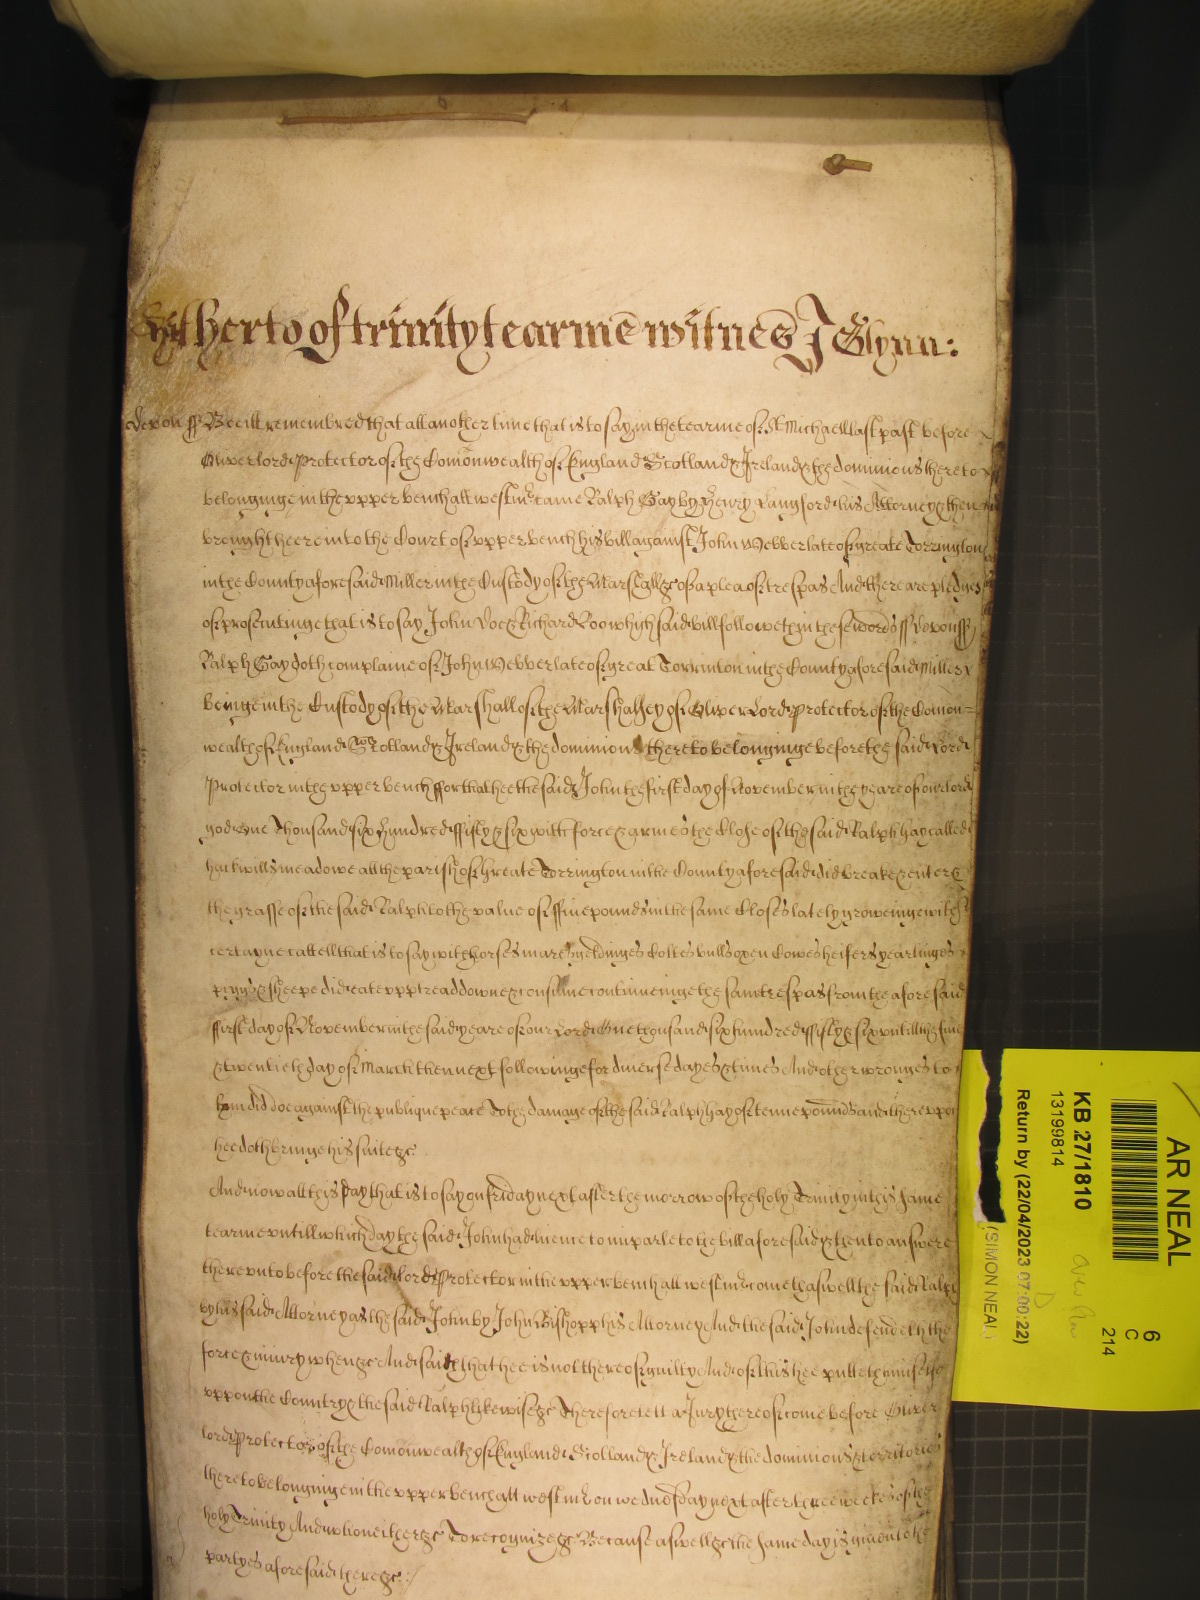 Hithertoo of trinity tearme witnes J Glynn:
Devon ss Bee itt remembred that att another time that is to say in the tearme of St Michaell last past before
Oliver lord Protector of the Comonwealth of England Scotland & Ireland & the dominions thereto
belonginge in the upper bench att westmr came Ralph Gay by Henry Langford his Attorney & then
brought heere into the Court of upper bench his bill against John Webber late of greate Torrington
in the County aforesaid Miller in the Custody of the Marshall &c of a plea of trespas And there are pledges
of prosecutinge that is to say John Doe & Richard Roo which said bill followeth in these words ss Devon ss
Ralph Gay doth complaine of John Webber late of great Torrinton in the County aforesaid Miller
beinge in the Custody of the Marshall of the Marshalsey of Oliver Lord Protector of the Comon=
wealth of England Scotland & Ireland & the dominions thereto belonginge before the said Lord
Protector in the upper bench ffor that hee the said John the first day of November in the yeare of our lord
god One Thousand six Hundred ffifty & six with force & armes the Close of the said Ralph Gay called
hackwills meadowe att the parish of Greate Torrington in the County aforesaid did breake & enter &
the grasse of the said Ralph to the value of ffive pounds in the same Closes lately groweinge with
certayne cattell that is to say with horses mares geldinges Coltes bulls oxen Cowes heifers yearlinges
piggs & sheepe did eate upp tread downe & consume continueinge the same trespas from the aforesaid
ffirst day of November in the said yeare of our Lord One thousand six hundred ffifty & six untill the five
& twentieth day of March then next followinge for diverse dayes & times And other wronges to
him did doe against the publique peace To the damage of the said Ralph Gay of tenne pounds and thereuppon
hee doth bringe his suite &c
And now att this day that is to say on friday next after the morrow of the holy Trinity in this same
tearme untill which day the said John had licence to imparle to the bill aforesaid & then to answere
thereunto before the said lord Protector in the upper bench att westmr come th aswell the said Ralph
by his said Attorney as the said John by John Bishopp his Attorney And the said John defendeth the
force & iniury when &c And saith that hee is not thereof guilty And of this hee putteth himselfe
uppon the Country & the said Ralph likewise &c Therefore lett a Jury thereof come before Oliver
lord Protector of the Comonwealth of England Scotland & Ireland & the dominions & territories
thereto belonginge in the upper bench att westmr on wednesday next after three weekes of the
holy Trinity And who neither &c To recognize &c Because aswell &c the same day is given to the
partyes aforesaid there &c:/
AR NEAL
6
C
214
KB 27/1810
13199814
Return by (22/04/2023 07:00:22)
(SIMON NEAL)